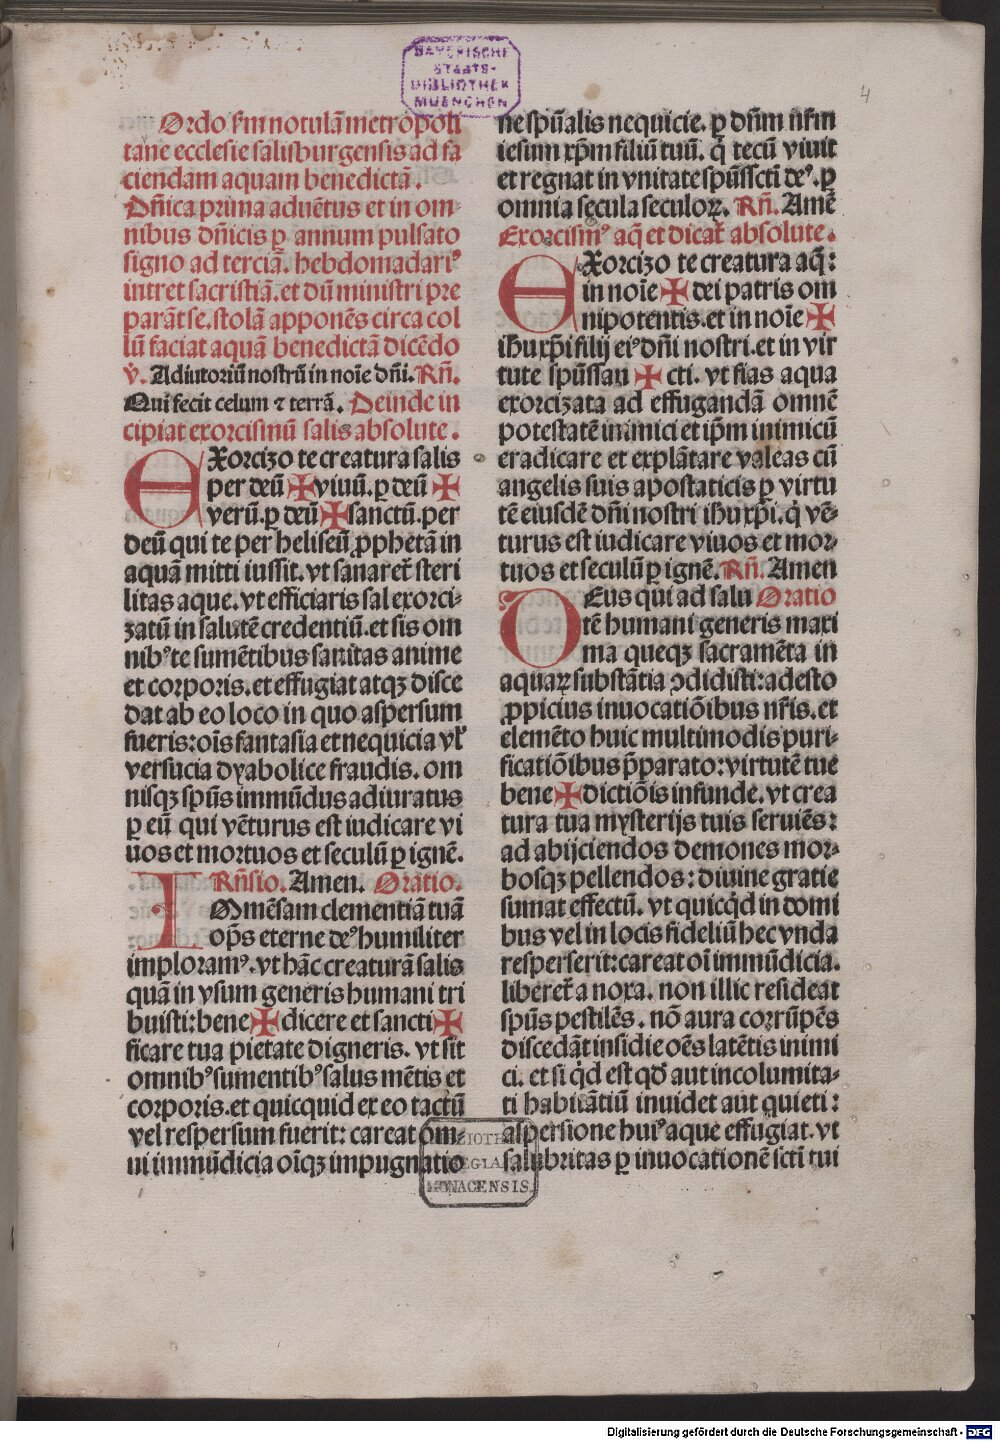 BAYERISCHE
STAATS-
BIBLIOTHEK
MUENCHEN
4
Ordo scḋm notulā metropoli
tane ecclesie salisburgensis ad fa
ciendam aquam benedictā.
Dn̄ica prima aduētus et in om-
nibus dn̄icis ꝑ annum pulsato
signo ad terciā. hebdomadariꝰ
intret sacristiā. et dū ministri pre
parāt se. stolā apponēs circa col
lū faciat aquā benedictā dicēdo
℣. Adiutoriū nostrū in noīe dn̄i. Rn̄.
Qui fecit celum ⁊ terrā. Deinde in
cipiat exorcismū salis absolute.
EXorcizo te creatura salis
per deū ✠ viuū. ꝑ deū ✠
verū. ꝑ deū ✠ sanctū. per
deū qui te per heliseū ꝓphetā in
aquā mitti iussit. vt sanaret᷑ steri
litas aque. vt efficiaris sal exorci-
zatū in salutē credentiū. et sis om
nibꝰ te sumētibus sanitas anime
et corporis. et effugiat atqꝫ disce
dat ab eo loco in quo aspersum
fueris: oīs fantasia et nequicia vl̓
versucia dyabolice fraudis. om
nisqꝫ spūs immūdus adiuratus
ꝑ eū qui vēturus est iudicare vi
uos et mortuos et seculū ꝑ ignē.
Rn̄sio. Amen. Oratio.
IMmēsam clementiā tuā
op̄s eterne deꝰ humiliter
imploramꝰ. vt hāc creaturā salis
quā in vsum generis humani tri
buisti: bene ✠ dicere et sancti ✠
ficare tua pietate digneris. vt sit
omnibꝰ sumentibꝰ salus mētis et
corporis. et quicquid ex eo tactū
vel respersum fuerit: careat om-
ni immūdicia oīqꝫ impugnatio
ne spūalis nequicie. ꝑ dn̄m nr̄m
iesum xp̄m filiū tuū. q̇ tecū viuit
et regnat in vnitate spūssct̄i deꝰ. ꝑ
omnia secula seculoꝝ. Rn̄. Amē
Exorcismꝰ aq̄ et dicat᷑ absolute.
EXorcizo te creatura aq̄:
in noīe ✠ dei patris om
nipotentis. et in noīe ✠
ihū xp̄i filij eiꝰ dn̄i nostri. et in vir
tute spūssan ✠ cti. vt fias aqua
exorcizata ad effugandā omnē
potestatē inimici et ip̄m inimicū
eradicare et explātare valeas cū
angelis suis apostaticis ꝑ virtu
tē eiusdē dn̄i nostri ihū xp̄i. q̇ vē-
turus est iudicare viuos et mor-
tuos et seculū ꝑ ignē. Rn̄. Amen
DEus qui ad salu Oratio
tē humani generis maxi
ma queqꝫ sacramēta in
aquaꝝ substātia ꝯdidisti: adesto
ꝓpicius inuocatiōibus nr̄is. et
elemēto huic multimodis puri-
ficatiōibus p̄parato: virtutē tue
bene ✠ dictiōis infunde. vt crea
tura tua mysterijs tuis seruiēs:
ad abijciendos demones mor-
bosqꝫ pellendos: diuine gratie
sumat effectū. vt quicq̇d in domi
bus vel in locis fideliū hec vnda
resperserit: careat oī immūdicia.
liberet᷑ a noxa. non illic resideat
spūs pestilēs. nō aura corrūpēs
discedāt insidie oēs latētis inimi
ci. et si q̇d est qd̓ aut incolumita-
ti habitātiū inuidet aut quieti:
aspersione huiꝰ aque effugiat. vt
salubritas ꝑ inuocationē sct̄i tui
BIBLIOTHECA
REGIA
MONACENSIS.
Digitalisierung gefördert durch die Deutsche Forschungsgemeinschaft - DFG